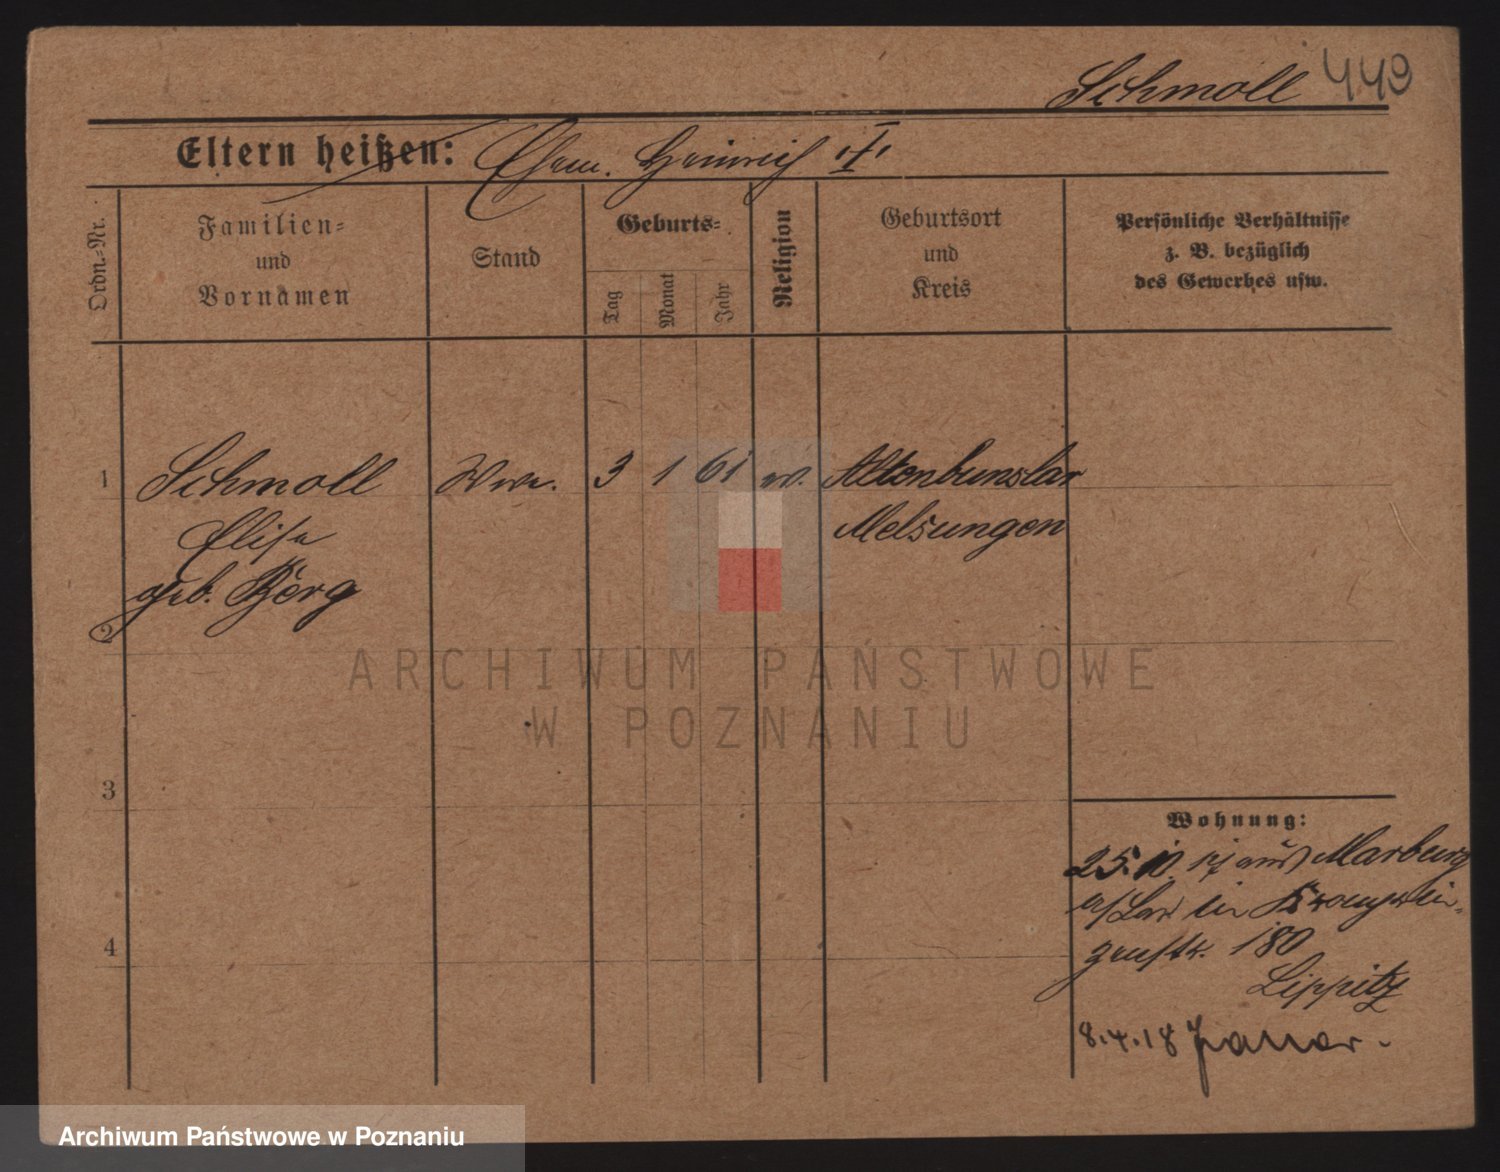 Schmoll 449
Eltern heißen: Ehem. Heinrich
Ordn.-Nr.
Familien-
und
Vornamen
Stand
Geburts-
Tag
Monat
Jahr
Religion
Geburtsort
und
Kreis
Persönliche Verhältnisse
z. B. bezüglich
des Gewerbes usw.
1 Schmoll Wwe. 3 1 61 ev. Altenbunslar
Elise Melsungen
geb. Berg
2
3
4
Wohnung:
25. aus Marburg
a/Lan in
180
Lippitz
8.4.18
ARCHIWUM PAŃSTWOWE
W POZNANIU
Archiwum Państwowe w Poznaniu